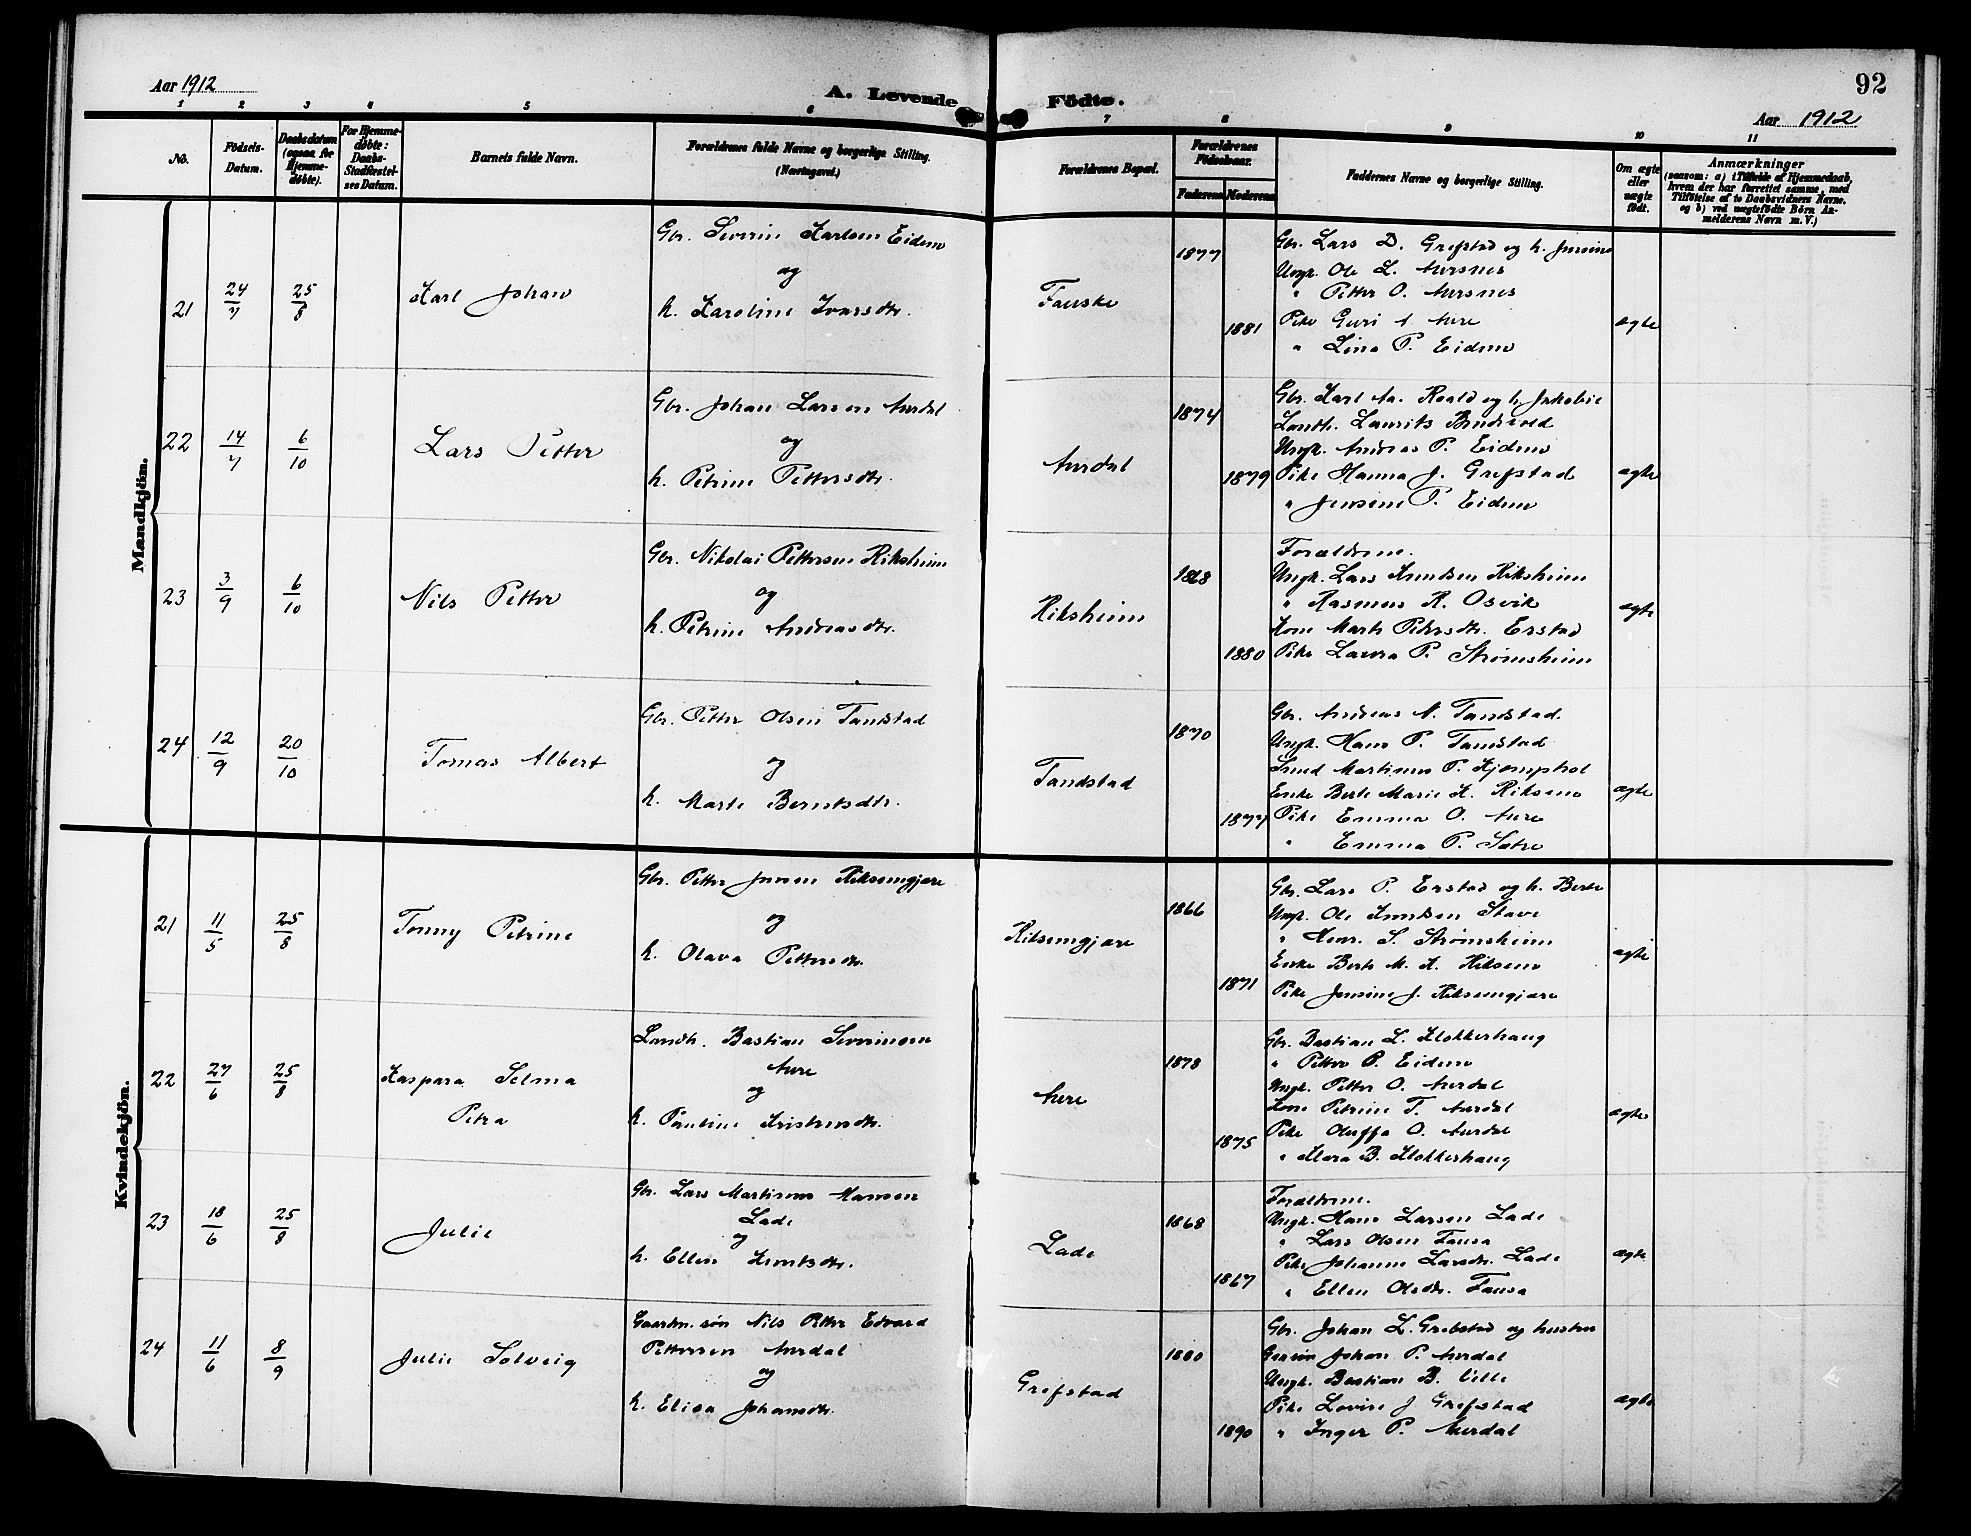 Aar 1912
A. Levende Födte.
92
Aar 1912
1 2 3 4 5 6 7 8 9 10 11
No.
Födsels-Datum.
Daabsdatum (ogsaa for Hjemme-døbte).
For Hjemme-døbte: Daabs-Stadfestel-ses Datum.
Barnets fulde Navn.
Forældrenes fulde Navne og borgerlige Stilling.
(Næringsvei.)
Forældrenes Bopæl.
Forældrenes Födselsaar.
Faderens Moderens
Faddernes Navne og borgerlige Stilling.
Om ægte eller uægte født.
Anmærkninger
(saasom: a) i Tilfælde af Hjemmedaab,
hvem der har forrettet samme, med
Tilføielse af to Daabsvidners Navne.
og b) ved uægtefödte Börn An-
melderens Navn m. V.)
Mandkjön.
21 24/7 25/8 Karl Johan
Gbr. Severin Karlsen Eidem
og
h. Karoline Ivarsdtr.
Fauske
1877
1881
Gbr. Lars D. Grefstad og h. Jensine
Ungk. Ole L. Aursnes
" Petter O. Aursnes
Pike Guri A Aure
" Lina P. Eidem
ægte
22 14/7 6/10 Lars Petter
Gbr. Johan Larsen Aurdal
og
h. Petrine Pettersdtr.
Aurdal
1874
1879
Gbr. Karl Aa. Roald og h. Jakobie
Landh. Laurits Brudevold
Ungk. Andreas P. Eidem
Pike Hanna J. Grefstad
" Jensine P. Eidem
ægte
23 3/9 6/10 Nils Petter
Gbr. Nikolai Pettersen Riksheim
og
h. Petrine Andreasdtr.
Riksheim
1868
1880
Forældrene.
Ungk. Lars Knudsen Riksheim
" Rasmus R. Osvik
Kone Marte Pedersdtr. Erstad
Pike Laura P. Strømsheim
ægte
24 12/9 20/10 Tomas Albert
Gbr. Petter Olsen Tandstad
og
h. Marte Berntsdtr.
Tandstad
1870
1877
Gbr. Andreas N. Tandstad.
Ungk. Hans P. Tandstad
Smed Martinus P.
Enke Berte Marie K. Riksem
Pike Emma O. Aure
" Emma P. Satre
ægte
Kvindekjön.
21 11/5 25/8 Tonny Petrine
Gbr. Petter Jensen Riksemgjære
og
h. Olava Pettersdtr.
Riksemgjære
1866
1871
Gbr. Lars P. Erstad og h. Berte
Ungk. Ole Knudsen Stave
" Henr. S. Strømsheim
Enke Berte M. K. Riksem
Pike Jensine J. Riksemgjære
ægte
22 27/6 25/8 Kaspara Selma
Petra
Landh. Bastian Severinsen
Aure
og
h. Pauline Kristensdtr.
Aure
1878
1875
Gbr. Bastian L. Klokkerhaug
" Petter P. Eidem
Ungk. Petter O. Aurdal
Kone Petrine T. Aurdal
Pike Oluffa O. Aurdal
" Klara B. Klokkerhaug
ægte
23 18/6 25/8 Julie
Gbr. Lars Martinus Hansen
Lade
og
h. Ellen Knutsdtr.
Lade
1868
1867
Forældrene.
Ungk. Hans Larsen Lade
" Lars Olsen Fausa
Pike Johanne Larsdtr. Lade
" Ellen Olsdtr. Fausa
ægte
24 11/6 8/9 Julie Solveig
Gaardm. søn Nils Petter Edvard
Pettersen Aurdal
og
h. Elisa Johansdtr.
Grefstad
1880
1890
Gbr. Johan L. Grebstad og hustru
Johan P. Aurdal
Ungk. Bastian B.
Pike Lovise J Grefstad
" Inger P. Aurdal
ægte